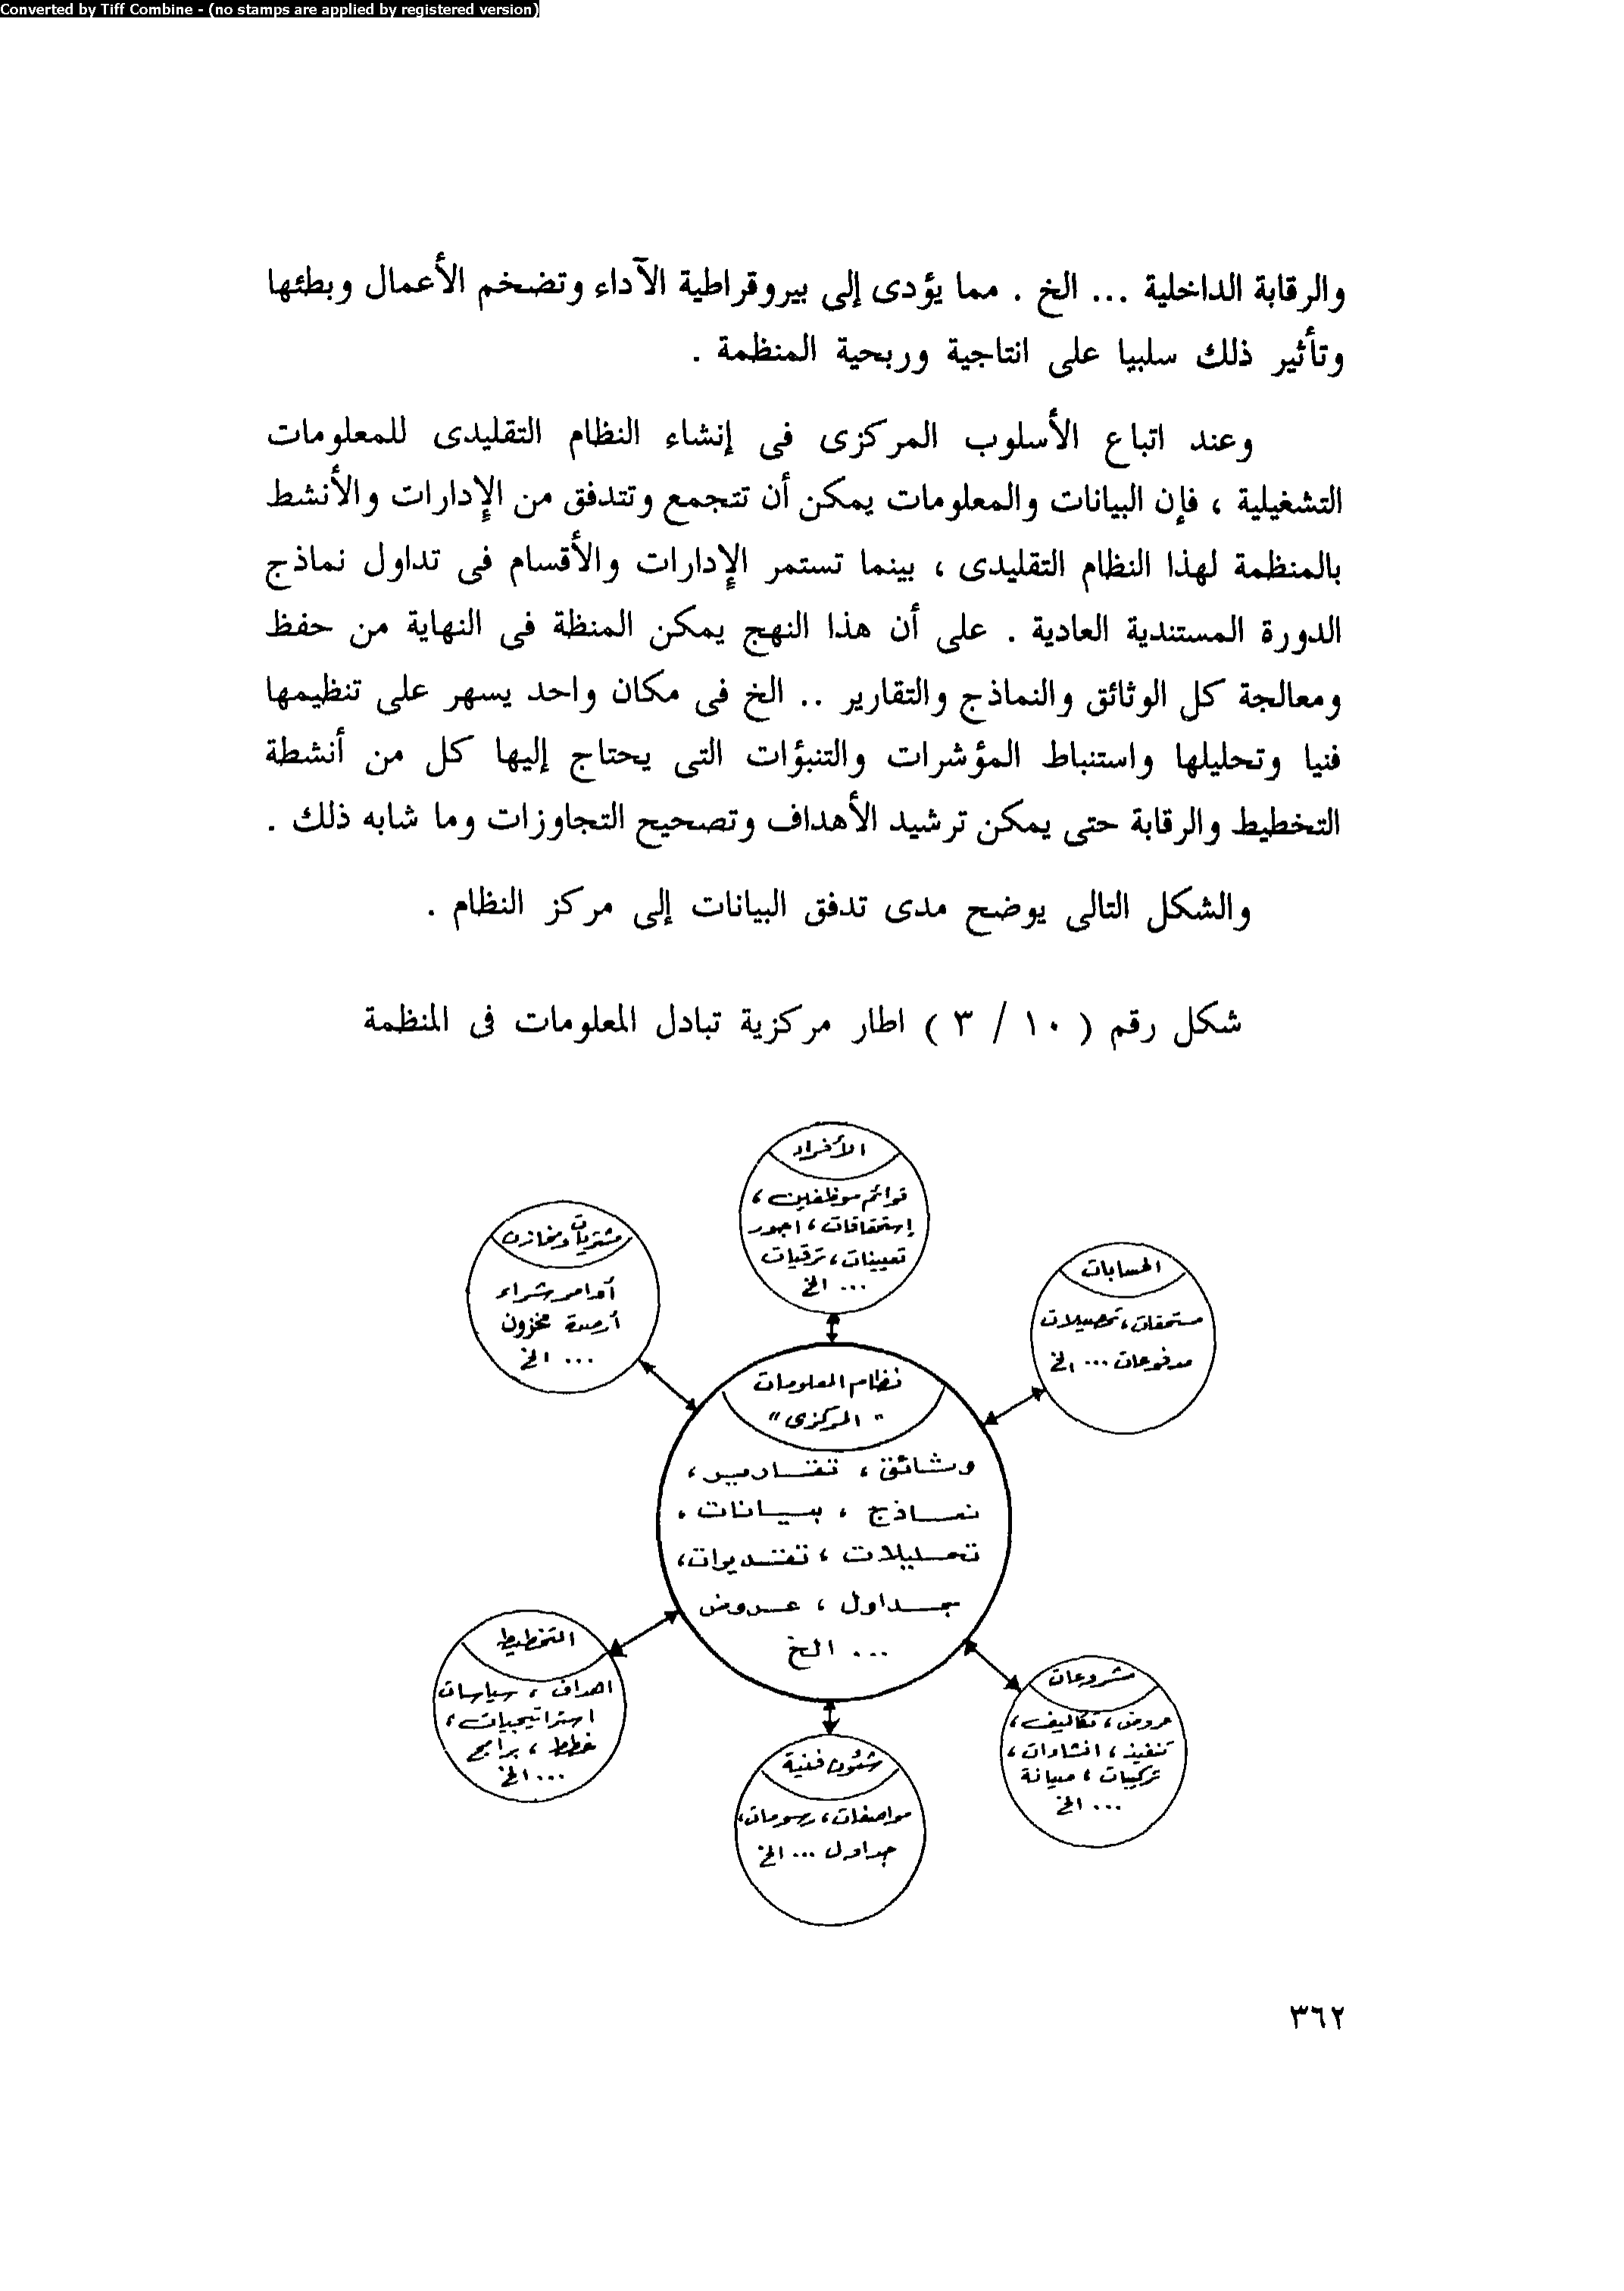 Converted by Tiff Combine - (no stamps are applied by registered version)
والرقابة الداخلية ... الخ . مما يؤدى إلى بيروقراطية الآداء وتضخم الأعمال وبطئها
وتأثير ذلك سلبيا على انتاجية وربحية المنظمة .
وعند اتباع الأسلوب المركزى فى إنشاء النظام التقليدى للمعلومات
التشغيلية ، فإن البيانات والمعلومات يمكن أن تتجمع وتتدفق من الإدارات والأنشط
بالمنظمة لهذا النظام التقليدى ، بينما تستمر الإدارات والأقسام فى تداول نماذج
الدورة المستندية العادية . على أن هذا النهج يمكن المنظة فى النهاية من حفظ
ومعالجة كل الوثائق والنماذج والتقارير .. الخ فى مكان واحد يسهر على تنظيمها
فنيا وتحليلها واستنباط المؤشرات والتنبؤات التى يحتاج إليها كل من أنشطة
التخطيط والرقابة حتى يمكن ترشيد الأهداف وتصحيح التجاوزات وما شابه ذلك .
والشكل التالى يوضح مدى تدفق البيانات إلى مركز النظام .
شكل رقم ( ١٠ / ٣ ) اطار مركزية تبادل المعلومات فى المنظمة
الأفراد
قوائم موظفين ،
إستحقاقات ، اجور
تعيينات ، ترقيات
... الخ
مشتريات ومخازن
أوامر شراء
أرصدة مخزون
... الخ
الحسابات
مستحقات ، تحصيلات
مدفوعات ... الخ
نظام المعلومات
" المركزى "
وشائق ، تقارير ،
نماذج ، بيانات .
تحليلات ، تقديرات ،
جداول ، عروض
... الخ
التخطيط
اهداف ، سياسات
استراتيجيات ،
خطط ، برامج
... الخ
مشروعات
عروض ، تكاليف ،
تنفيذ ، انشاءات ،
تركيبات ، صيانة
... الخ
شئون فنية
مواصفات ، رسومات ،
جداول ... الخ
٣٦٢